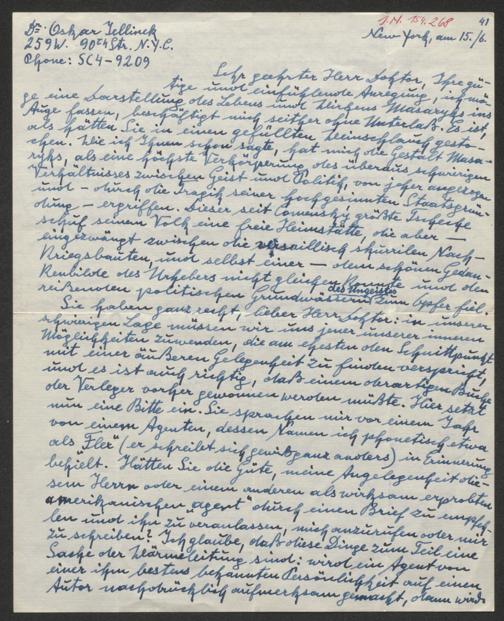 J.N. 154.268
41
Dr. Oskar Jellinek
259 W. 90th Str. N.Y.C.
Phone: SC4-9209
New York, am 15./6.
Sehr geehrter Herr Doktor, Ihre gü-
tige und einfühlende Anregung, ich mö-
ge eine Darstellung des Lebens und Wirkens Masaryks ins
Auge fassen, beschäftigt mich seither ohne Unterlaß. Es ist,
als hätten Sie in einen gefüllten Weinschlauch gesto-
chen. Wie ich Ihnen schon sagte, hat mich die Gestalt Masa-
ryks, als eine höchste Verkörperung des überaus schwierigen
Verhältnisses zwischen Geist und Politik, von jeher angezogen
und – durch die Tragik seiner hochgesinnten Staatsgrün-
dung – ergriffen. Dieser seit Comensky größte Tscheche
schuf seinem Volk eine freie Heimstätte, die aber –
eingezwängt zwischen die versaillisch skurrilen Nach-
kriegsbauten, und selbst einer – dem schönen Gedan-
kenbilde des Urhebers nicht gleichen konnte und den
reißenden politischen Grundwässern des Ungeists zum Opfer fiel.
Sie haben ganz recht, lieber Herr Doktor: in unserer
schwierigen Lage müssen wir uns jener unserer inneren
Möglichkeiten zuwenden, die am ehesten den Schnittpunkt
mit einer äußeren Gelegenheit zu finden verspricht,
und es ist auch richtig, daß einem derartigen Buche
der Verleger vorher gewonnen werden müßte. Hier setzt
nun eine Bitte ein. Sie sprachen mir vor einem Jahr
von einem Agenten, dessen Namen ich phonetisch etwa
als "Fler" (er schreibt sich gewiß ganz anders) in Erinnerung
behielt. Hätten Sie die Güte, meine Angelegenheit die-
sem Herrn oder einem anderen als wirksam erprobten
amerikanischen "agent" durch einen Brief zu empfeh-
len und ihn zu veranlassen, mich anzurufen oder mir
zu schreiben? Ich glaube, daß diese Dinge zum Teil eine
Sache der Wärmeleitung sind: wird ein Agent von
einer ihm bestens bekannten Persönlichkeit auf einen
Autor nachdrücklich aufmerksam gemacht, dann wird